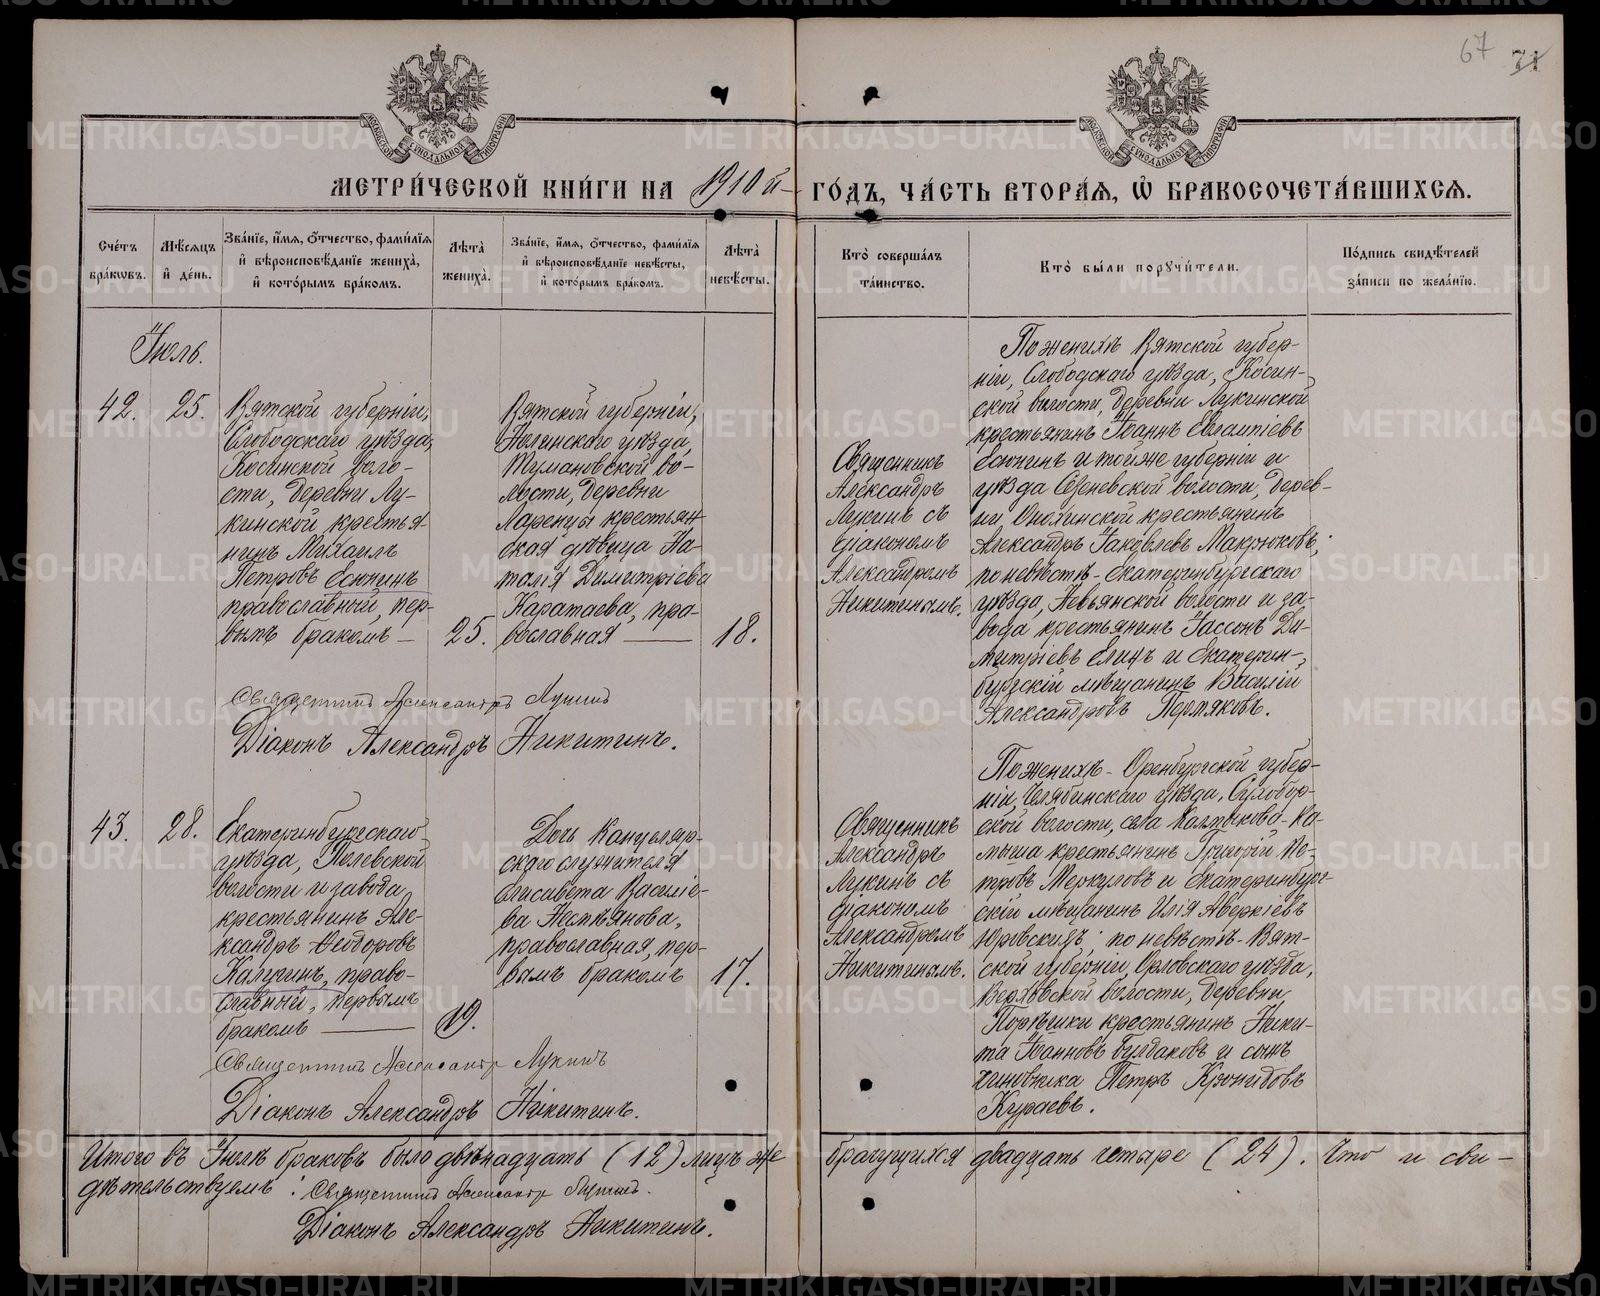 67 71
МОСКОВСКОЙ СѴНОДАЛЬНОЙ ТИПОГРАФІИ
МОСКОВСКОЙ СѴНОДАЛЬНОЙ ТИПОГРАФІИ
МЕТРИ́ЧЕСКОЙ КНИ́ГИ НА 1910й ГО́ДЪ, ЧА́СТЬ ВТОРА́Я, Ѡ БРАКОСОЧЕТА́ВШИХСЯ.
Сче́тъ бра́ковъ.
Мѣ́сяцъ и́ де́нь.
Зва́нїе, и́мя, ѻ́тчество, фами́лїя
и́ вѣроисповѣ́данїе жениха̀,
и́ кото́рымъ бра́комъ.
Лѣта̀ жениха̀.
Зва́нїе, и́мя, ѻ́тчество, фами́лїя
и́ вѣроисповѣ́данїе невѣ́сты,
и́ кото́рымъ бра́комъ.
Лѣта̀ невѣ́сты.
Кто̀ соверша́лъ та́инство.
Кто̀ бы́ли поручи́тели.
По́дпись свидѣ́телей
за́писи по жела́нїю.
Іюль.
42. 25.
Вятской губерніи,
Слободскаго уѣзда,
Косинской воло-
сти, деревни Лу-
кинской крестья-
нинъ Михаилъ
Петровъ Есюнинъ
православный, пер-
вымъ бракомъ —
25.
Вятской губерніи,
Нолинскаго уѣзда,
Тумановской во-
лости, деревни
Ларенцы крестьян-
ская дѣвица На-
талія Димитріева
Каратаева, пра-
вославная —
18.
Священникъ
Александръ
Лукинъ съ
діакономъ
Александромъ
Никитинымъ.
По женихѣ Вятской губер-
ніи, Слободскаго уѣзда, Косин-
ской волости, деревни Лукинской
крестьянинъ Іоаннъ Евлампіевъ
Есюнинъ и тойже губерніи и
уѣзда Сезеневской волости, дерев-
ни Онохинской крестьянинъ
Александръ Іаковлевъ Макрюковъ;
по невѣстѣ - Екатеринбургскаго
уѣзда, Невьянской волости и за-
вода крестьянинъ Іассонъ Ди-
митріевъ Елицъ и Екатерин-
бургскій мѣщанинъ Василій
Александровъ Пермяковъ.
Священникъ Александръ Лукинъ
Діаконъ Александръ Никитинъ.
43. 28.
Екатеринбургскаго
уѣзда, Полевской
волости и завода
крестьянинъ Але-
ксандръ Ѳеодоровъ
Калугинъ, право-
славный, первымъ
бракомъ —
19.
Дочь канцеляр-
скаго служителя
Елисавета Василіе-
ва Нестьянова,
православная, пер-
вымъ бракомъ
17.
Священникъ
Александръ
Лукинъ съ
діакономъ
Александромъ
Никитинымъ.
По женихѣ - Оренбургской губер-
ніи, Челябинскаго уѣзда, Сухобор-
ской волости, села Калмыкова-Ка-
мыша крестьянинъ Григорій Пе-
тровъ Меркуловъ и Екатеринбург-
скій мѣщанинъ Илія Аверкіевъ
Юровскихъ; по невѣстѣ - Вят-
ской губерніи, Орловскаго уѣзда,
Верховской волости, деревни
крестьянинъ Ники-
та Іоанновъ Булдаковъ и сынъ
чиновника Петръ Кронидовъ
Кураевъ.
Священникъ Александръ Лукинъ
Діаконъ Александръ Никитинъ.
Итого въ Іюлѣ браковъ было двѣнадцать (12) лицъ же брачущихся двадцать четыре (24). Что и сви-
дѣтельствуемъ: Священникъ Александръ Лукинъ.
Діаконъ Александръ Никитинъ.
METRIKI.GASO-URAL.RU